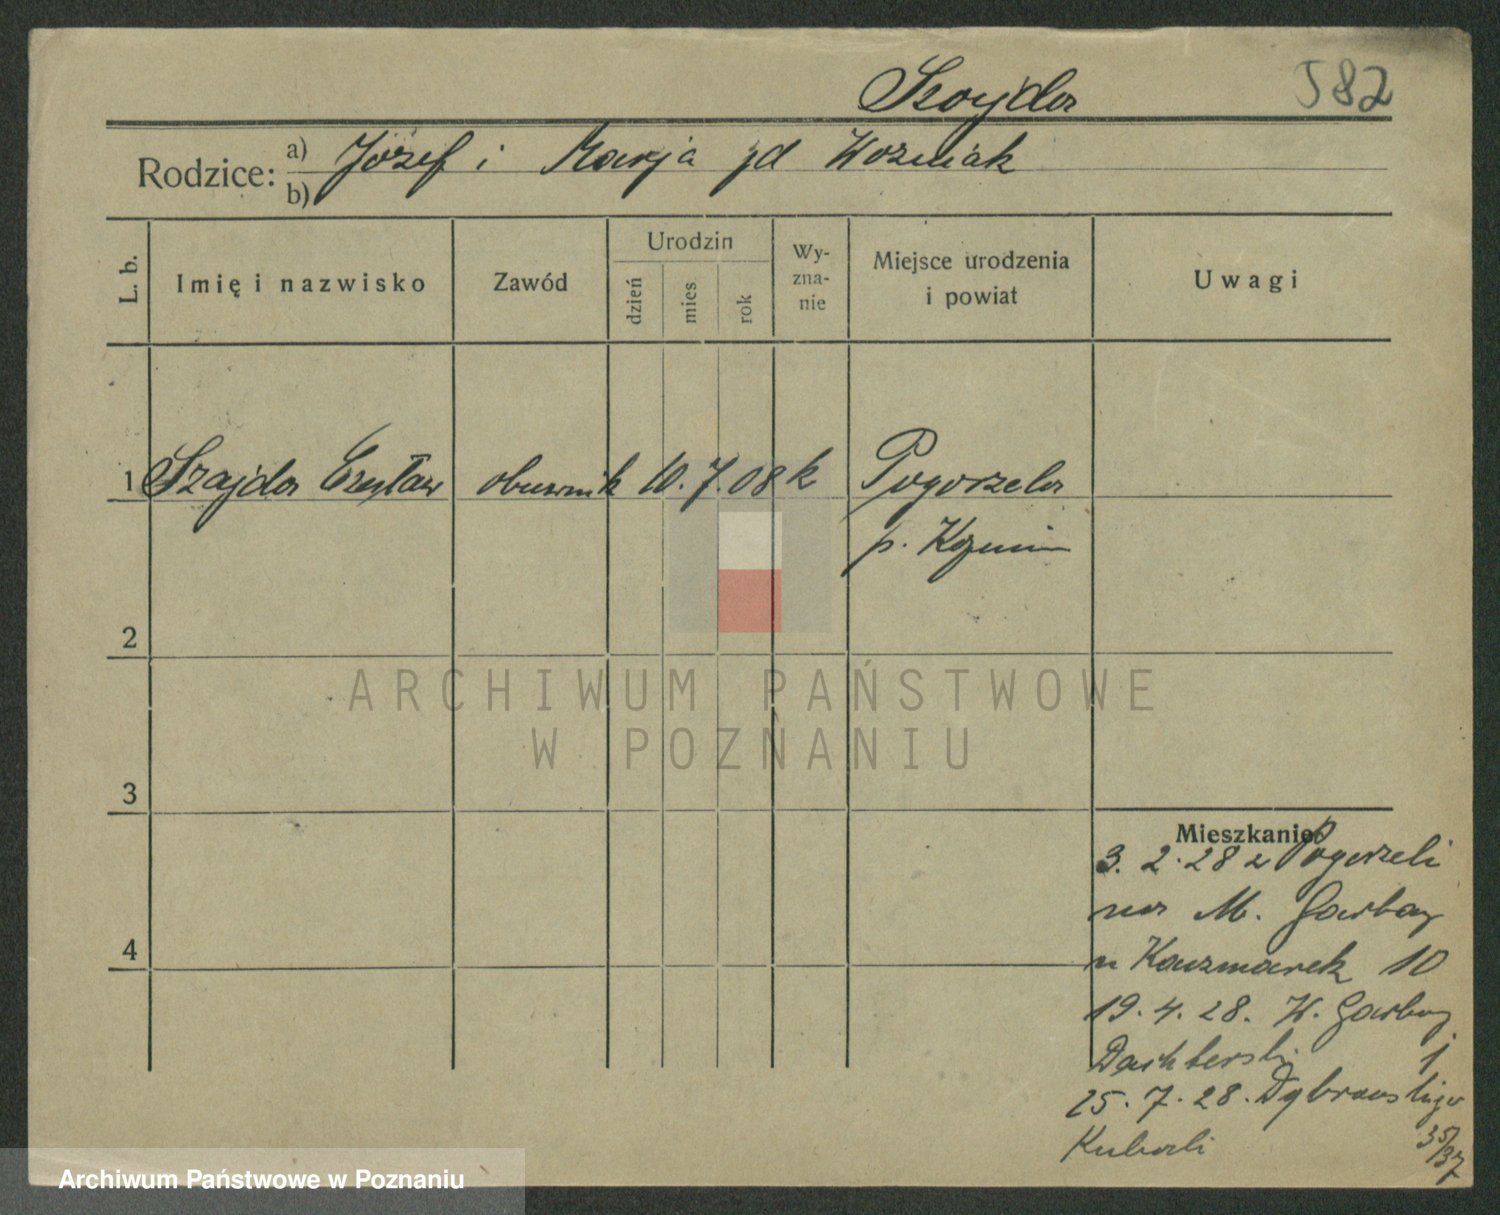 Szajda
582
Rodzice:
a) Józef i Marja zd Wozniak
b)
L. b.
Imię i nazwisko
Zawód
Urodzin
dzień
mies
rok
Wy-
zna-
nie
Miejsce urodzenia
i powiat
Uwagi
1 Szajda Czesław obuwnik 10. 7. 08 k Pogorzela
p. Kozmin
2
ARCHIWUM PAŃSTWOWE
W POZNANIU
3
Mieszkanie:
3. 2. 28 z Pogorzeli
na M. Garbary
u Kaczmarek 10
19. 4. 28. W. Garbary
1
25. 7. 28. Dąbrowskiego
35/37
4
Archiwum Państwowe w Poznaniu